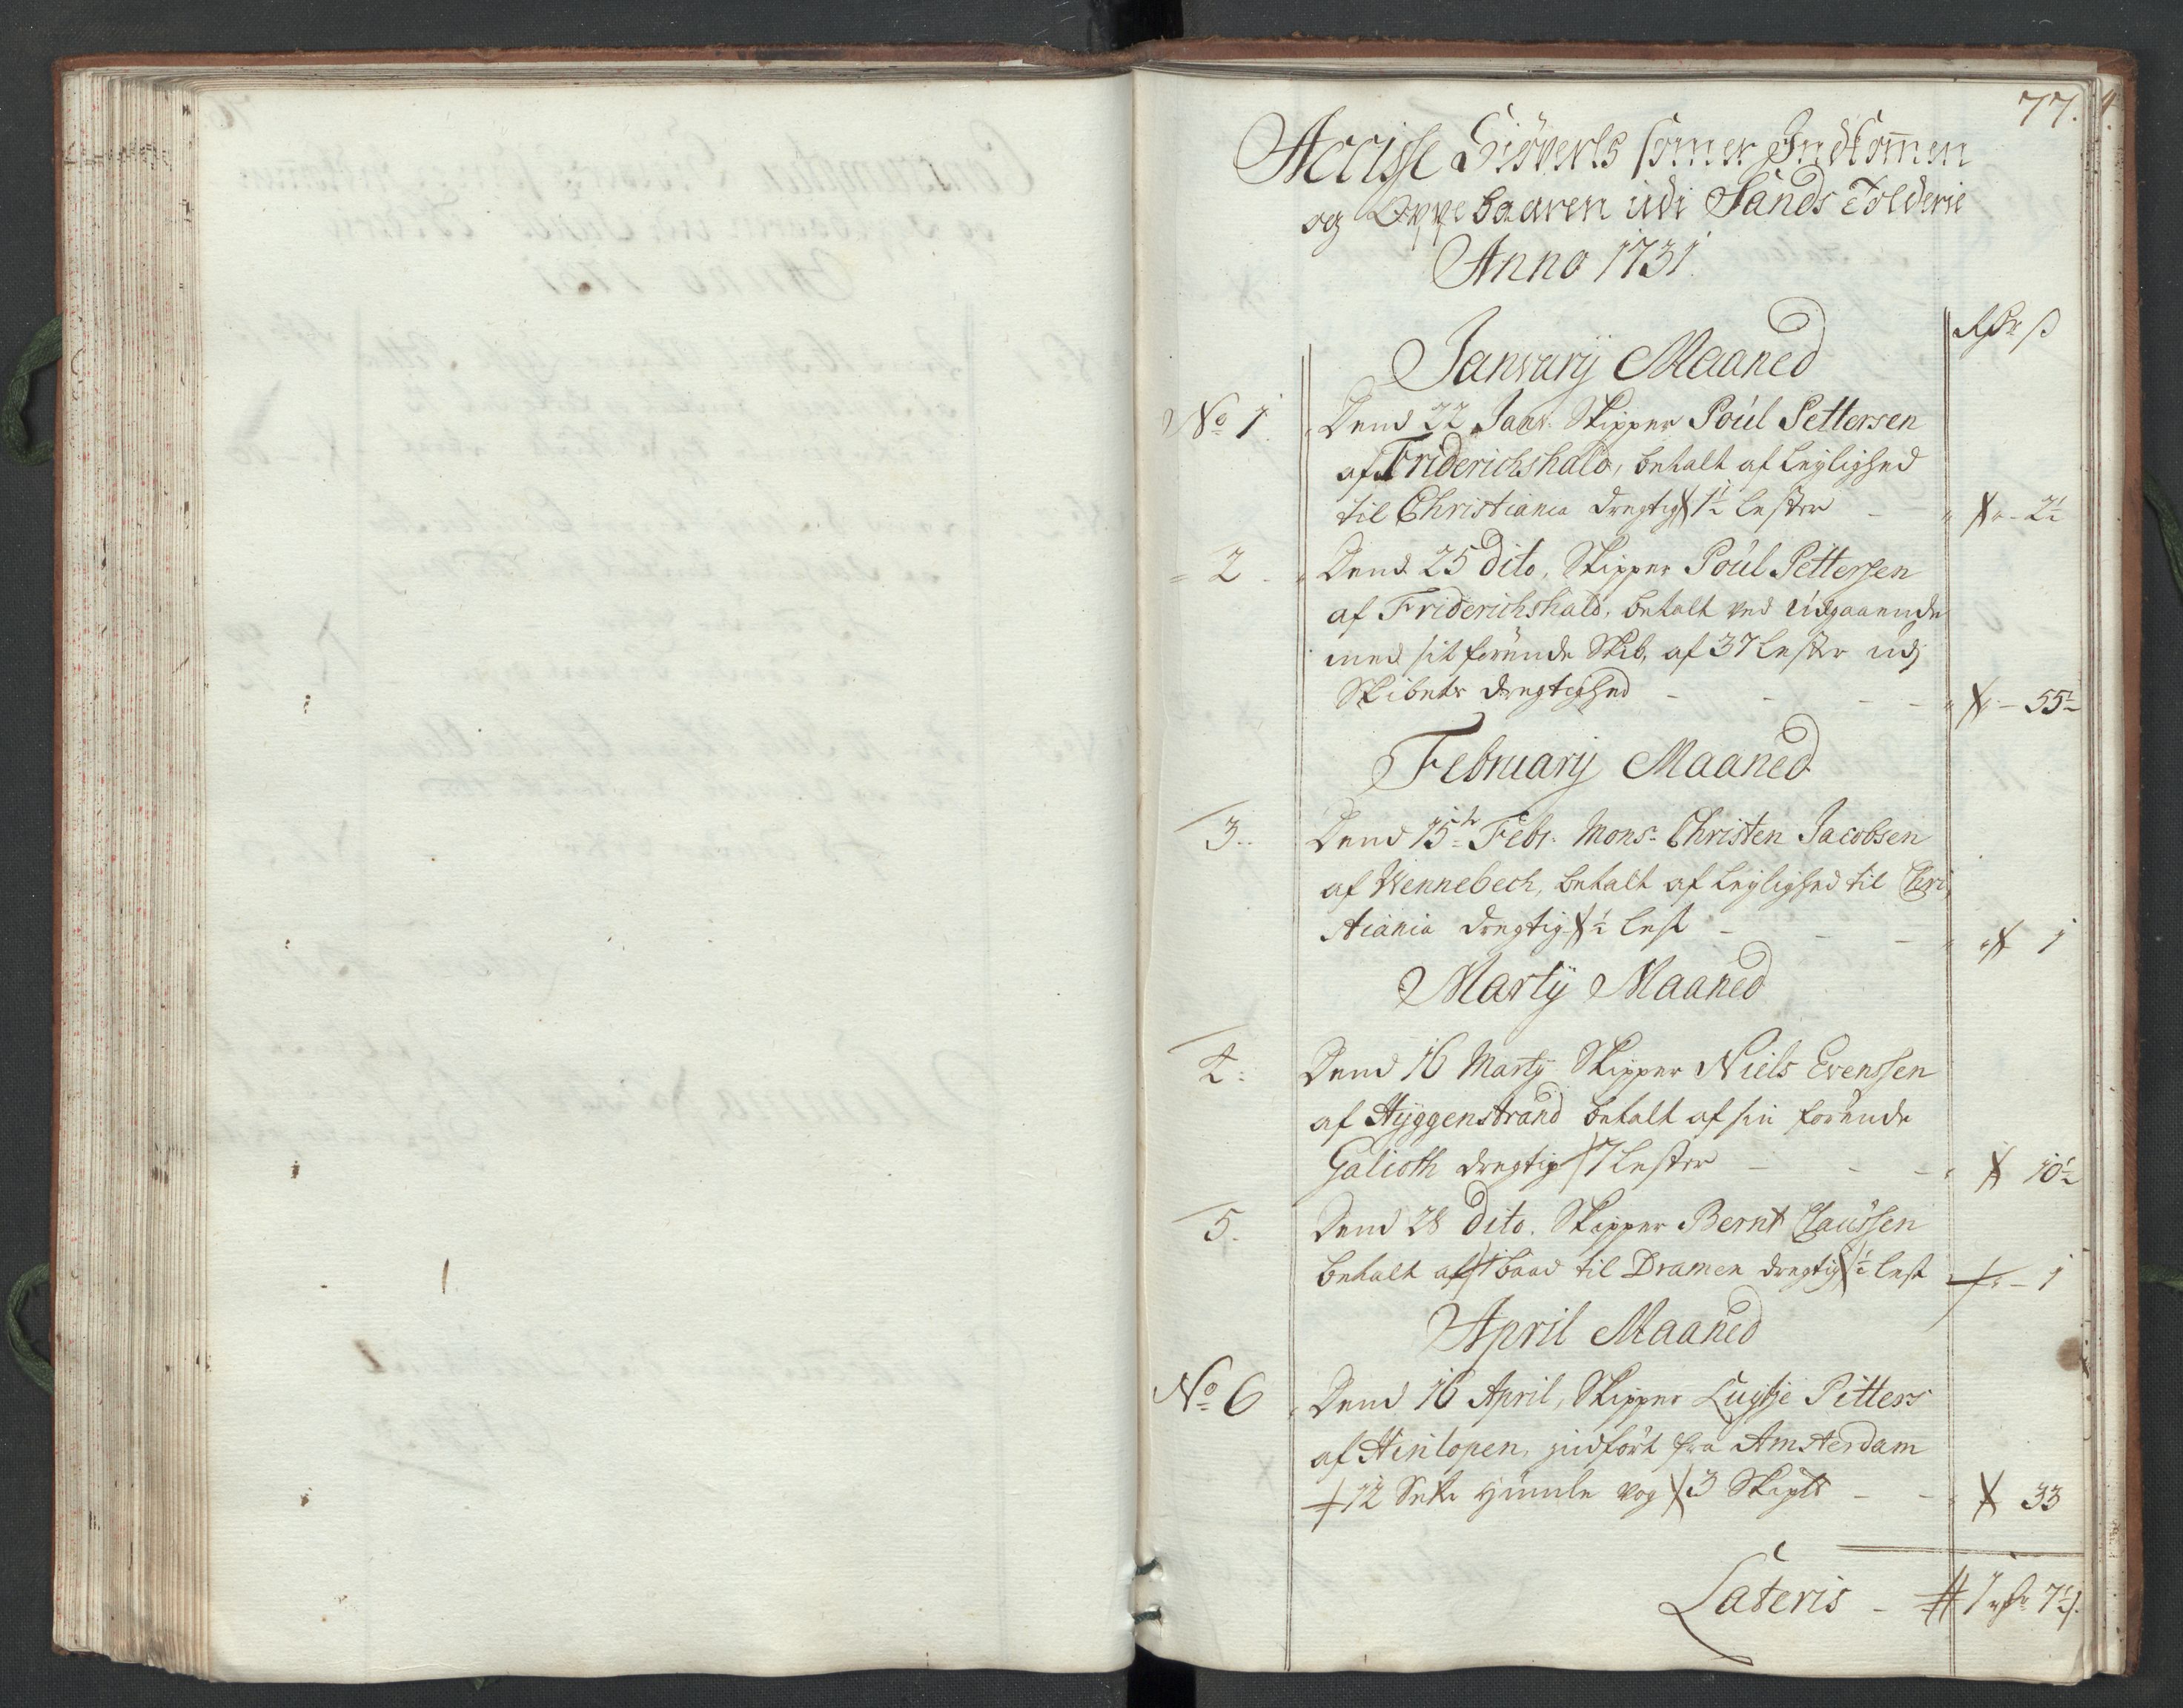 77.
Accisse som er Indkommen
og Oppebaaren udi Sands Tolderie
Anno 1731
Rdr ß
Janvarij Maaned
No 1. Dend 22 Janv. Skipper Poul Pettersen
af Friderichshald, betalt af Leylighed
til Christiania dregtig 1½ Lester - 2½
2 Dend 25 dito, Skipper Poul Pettersen
af Friderichshald, betalt ved Udgaaende
med sit førende Skib, af 37 Lester udj
Skibets Dregtighed - 55½
February Maaned
3. Dend 15de Febr. Mons. Christen Jacobsen
af Wennebech, betalt af Leylighed til Chri,
stiania dregtig ½ Lest - 1
Martij Maaned
4. Dend 16 Martj Skipper Niels Evenssen
af Hyggenstrand betalt af sin førende
Galioth dregtig 7 Lester - 10½
5. Dend 28 dito. Skipper Bernt Claussen
betalt af 1 baad til Dramen dregtig ½ Lest - 1
April Maaned
No 6. Dend 16 April, Skipper Luytje Pitters
af Hinlopen, indført fra Amsterdam
12 Sekk Humle vog 3 Skipd - 33
Lateris - 1 rdr 7½ ß.